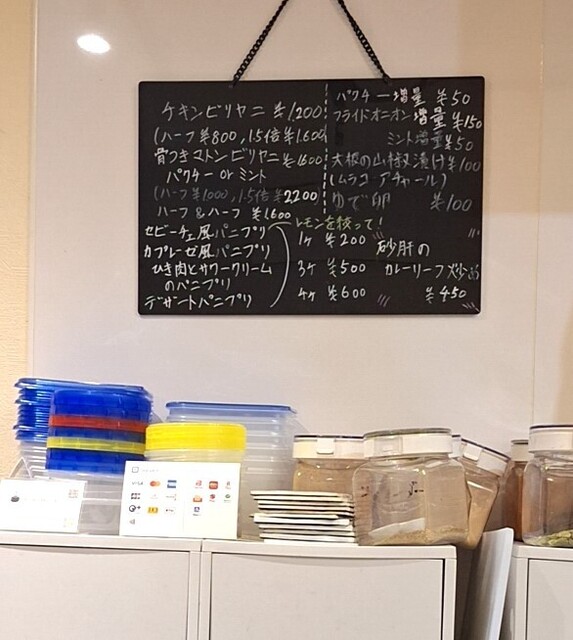 チキンビリヤニ ¥1200
(ハーフ ¥800, 1.5倍 ¥1.600)
骨つきマトンビリヤニ ¥1600
パクチー or ミント
(ハーフ ¥1000, 1.5倍 ¥2200
ハーフ&ハーフ ¥1600
セビーチェ風パニプリ
カプレーゼ風パニプリ
ひき肉とサワークリーム
のパニプリ
デザートパニプリ
レモンを絞って!
1ヶ ¥200
3ヶ ¥500
4ヶ ¥600
パクチー増量 ¥50
フライドオニオン増量 ¥150
ミント増量 ¥50
大根の山椒漬け ¥100
(ムラコアチャール)
ゆで卵 ¥100
砂肝の
カレーリーフ炒め
¥450
VISA